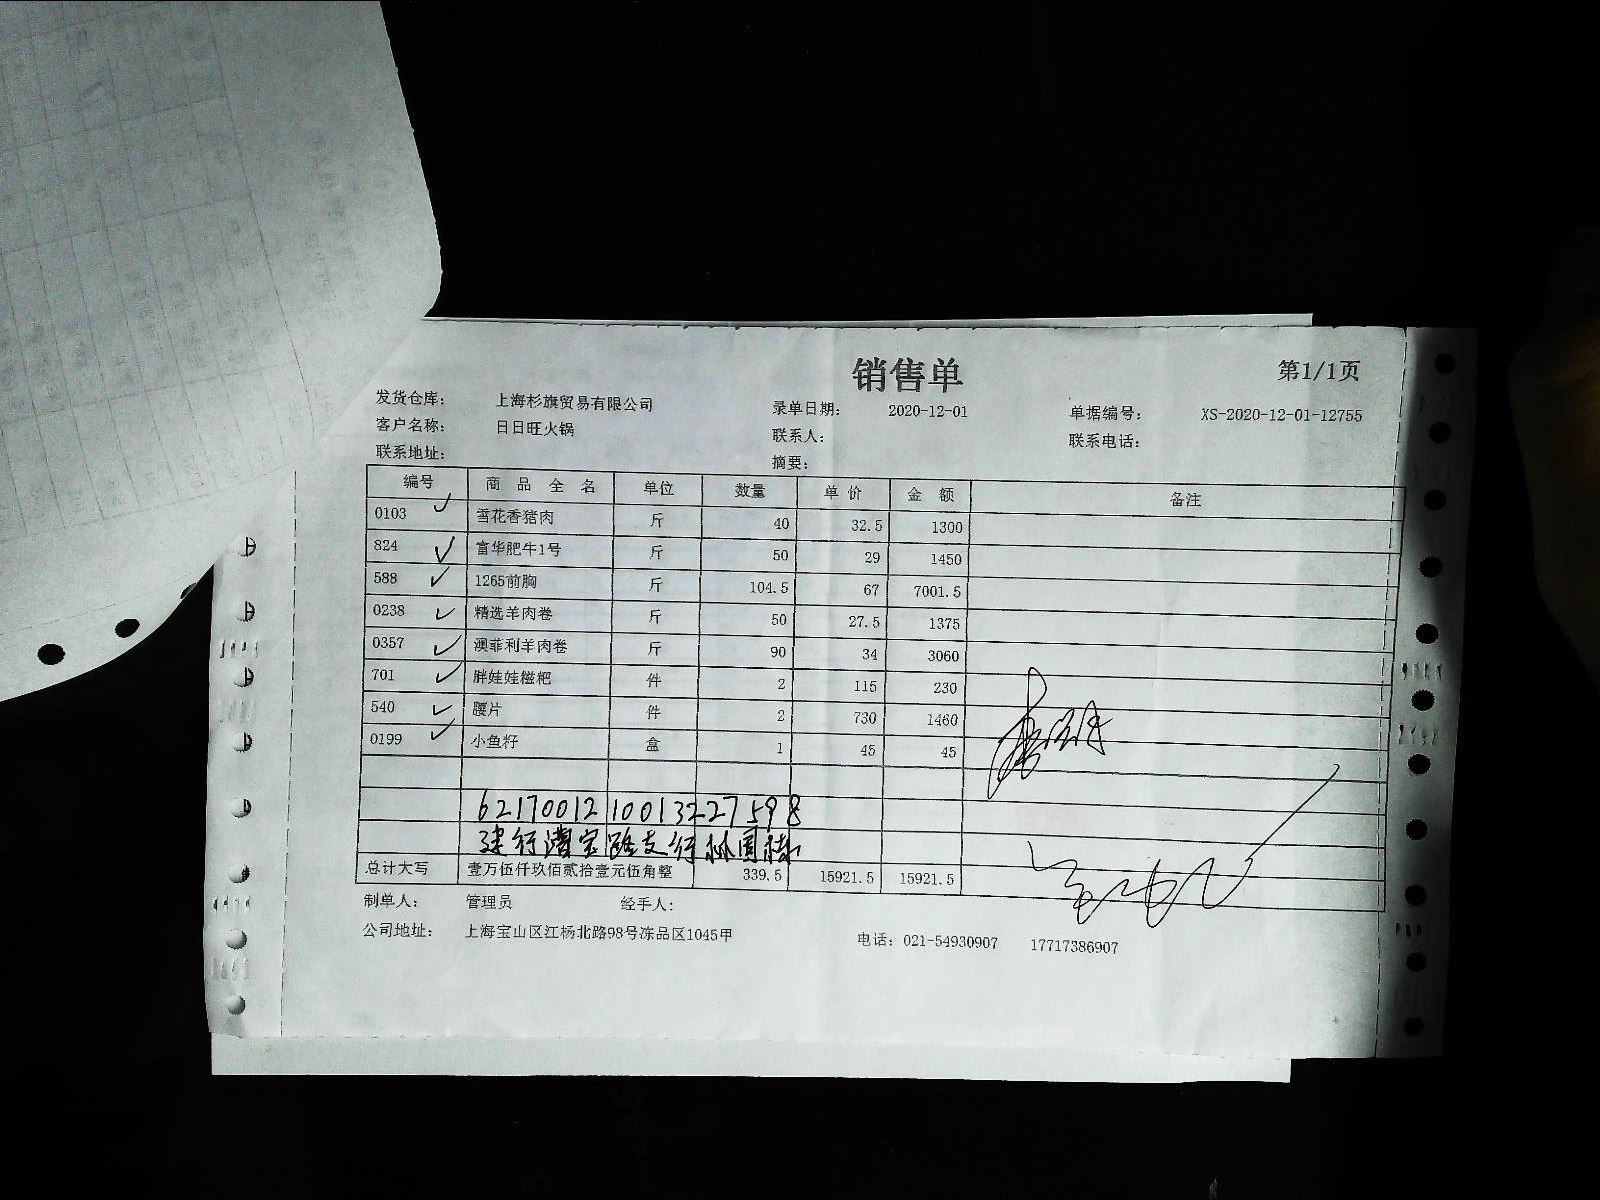 销售单
第1/1页
发货仓库： 上海杉旗贸易有限公司 录单日期： 2020-12-01 单据编号： XS-2020-12-01-12755
客户名称： 日日旺火锅 联系人： 联系电话：
联系地址： 摘要：
编号 商品全名 单位 数量 单价 金额 备注
0103 雪花香猪肉 斤 40 32.5 1300
824 富华肥牛1号 斤 50 29 1450
588 1265前胸 斤 104.5 67 7001.5
0238 精选羊肉卷 斤 50 27.5 1375
0357 澳菲利羊肉卷 斤 90 34 3060
701 胖娃娃糍粑 件 2 115 230
540 腰片 件 2 730 1460
0199 小鱼籽 盒 1 45 45
6217001210013227598
建行 宝路支行林国栋
总计大写 壹万伍仟玖佰贰拾壹元伍角整 339.5 15921.5 15921.5
制单人： 管理员 经手人：
公司地址： 上海宝山区江杨北路98号冻品区1045甲 电话：021-54930907 17717386907